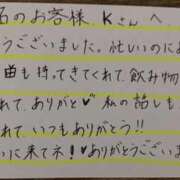 名のお客様、Kさんへ
うございました。忙しいのに
曲も持ってきてくれて飲み物
れて、ありがと♥私の話しも
れて、いつもありがとう!!
いに来てネ!♥ありがとうございま